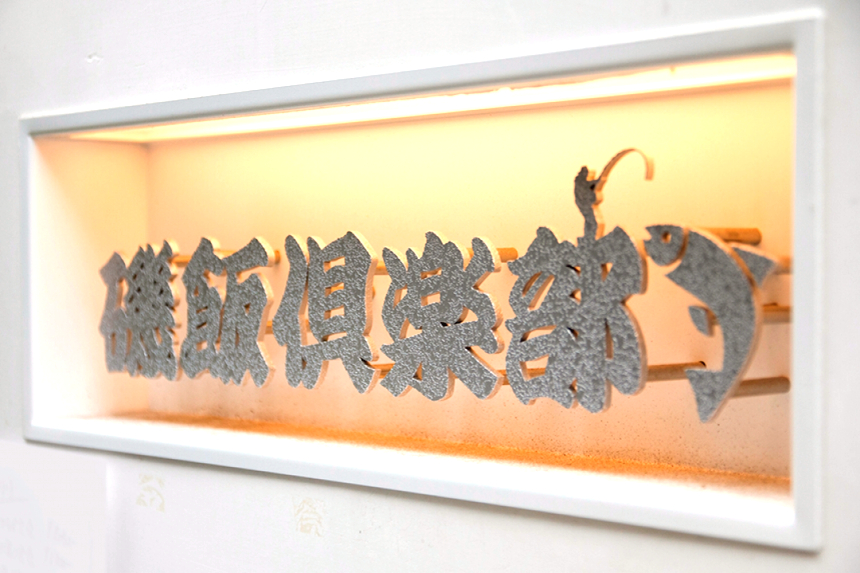 磯飯倶楽部